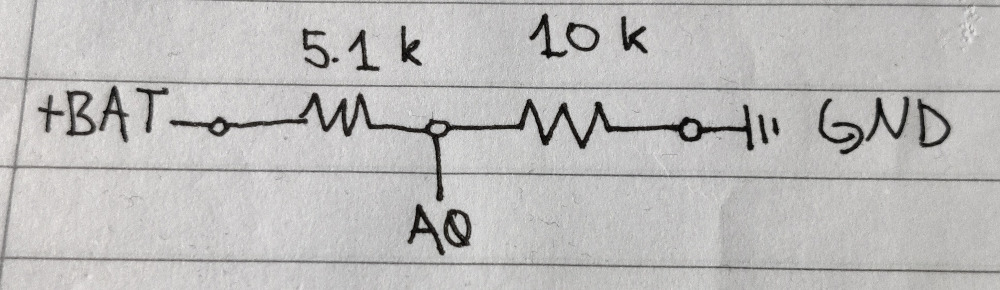 5.1 k 10 k
+BAT GND
A0